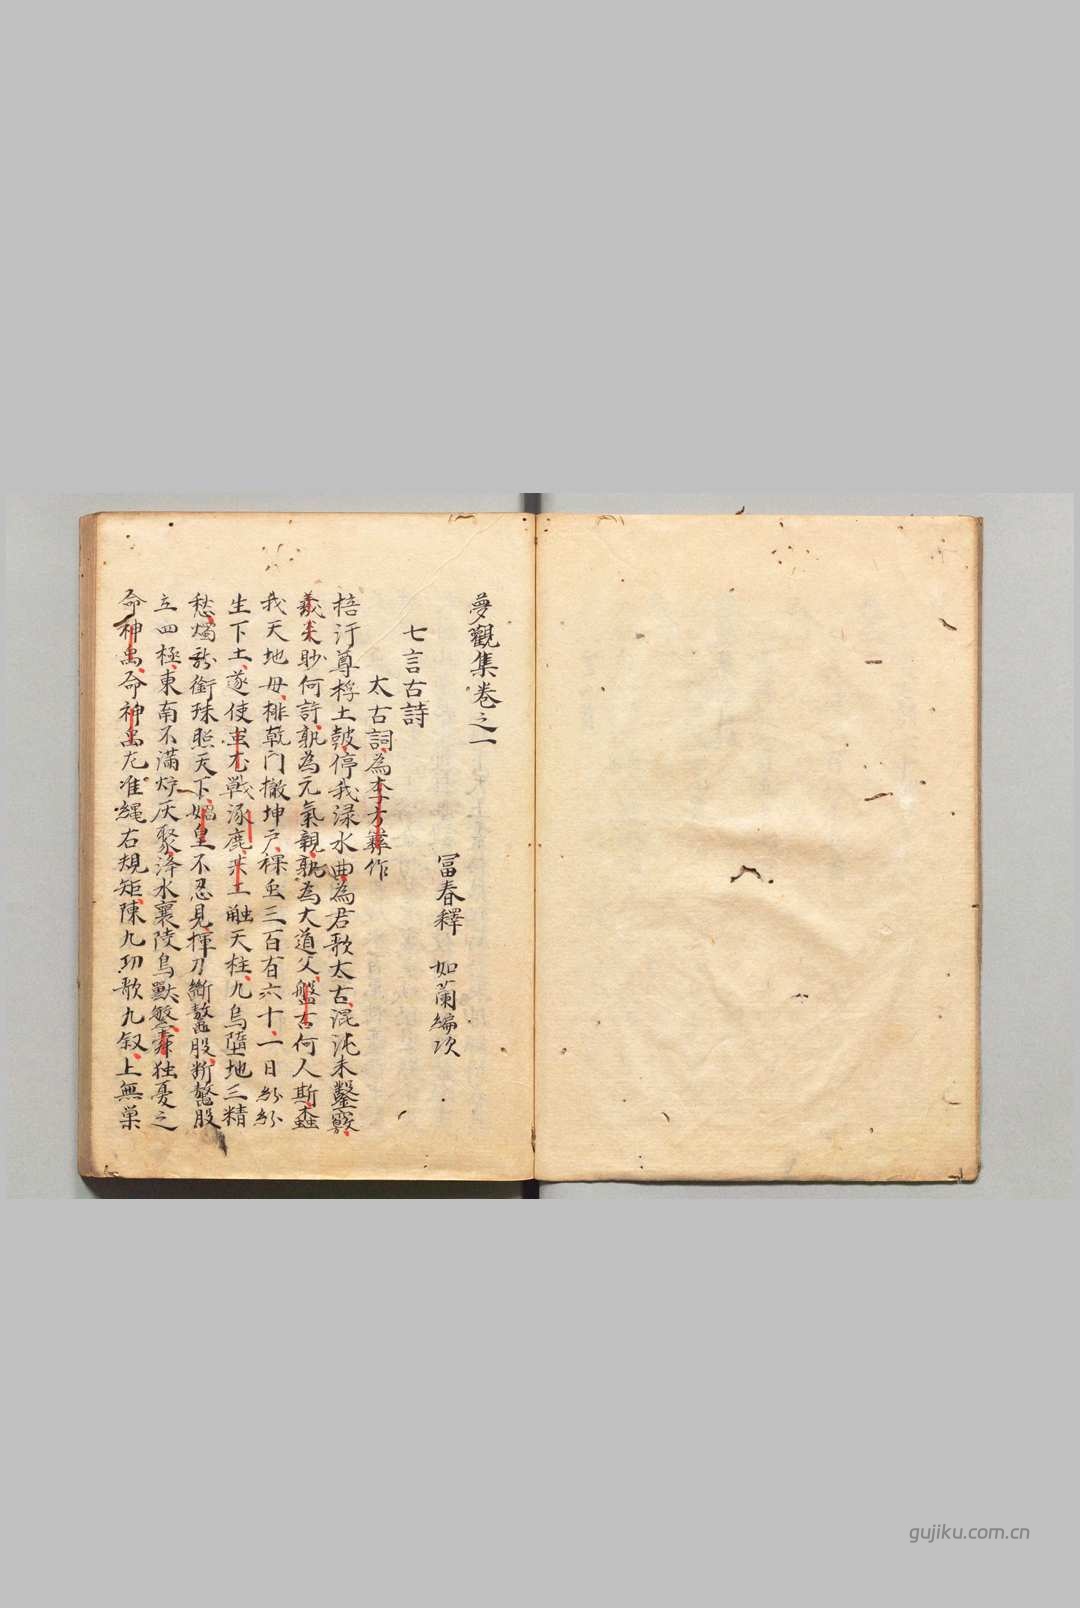 夢觀集卷之一
冨春釋 如蘭編次
七言古詩
太古詞為李方彝作
棓汙尊桴土皷停我渌水曲為君歌太古混沌未鑿竅
羲未眇何許孰為元氣親孰為大道父盤古何人斯蠢
我天地母排乹門撤坤户裸虫三百有六十一日紛紛
生下土遂使蚩尤戰涿鹿共工觸天柱九烏墮地三精
愁燭龍銜珠照天下媧皇不忍見揮刀斷鼇股断鼇股
立四極東南不滿炉灰聚洚水襄陵鳥獸繁舜独憂之
命神禹命神禹左准繩右規矩陳九功歌九叙上無巢
gujiku.com.cn